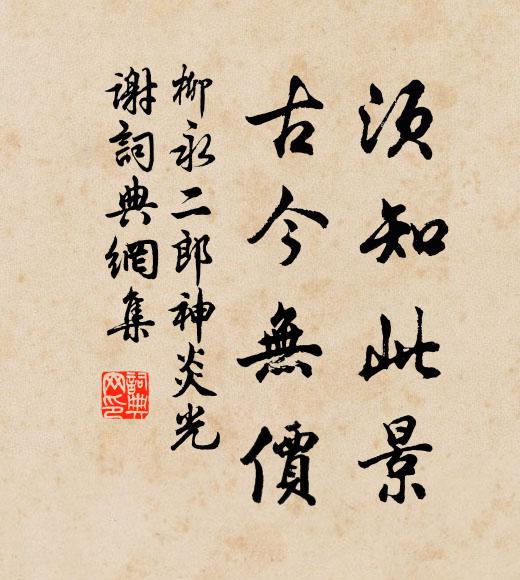 須知此景
古今無價
柳永二郎神炎光
謝詞典網集
詞典
网印